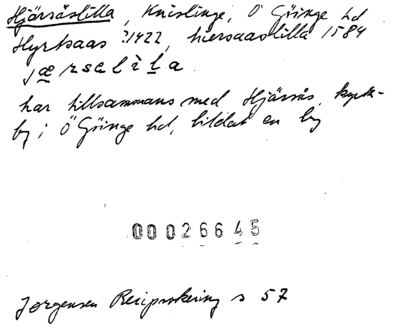 Hjärsåslilla, Knislinge, Ö Göinge hd
Hyrtsaas ?1422, hiersaaslilla 1584
jæ r sa l i l a
har tillsammans med Hjärsås, kyrk-
by i Ö Göinge hd, bildat en by
00026645
Jørgensen Reciprokering s 57